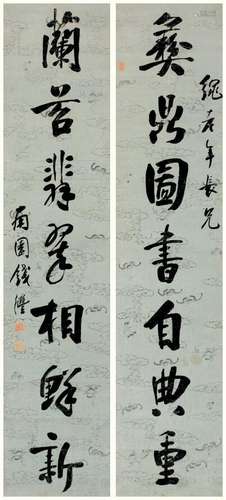 彝鼎圖書自典重
年長兄
蘭苕翡翠相鮮新
南園錢灃